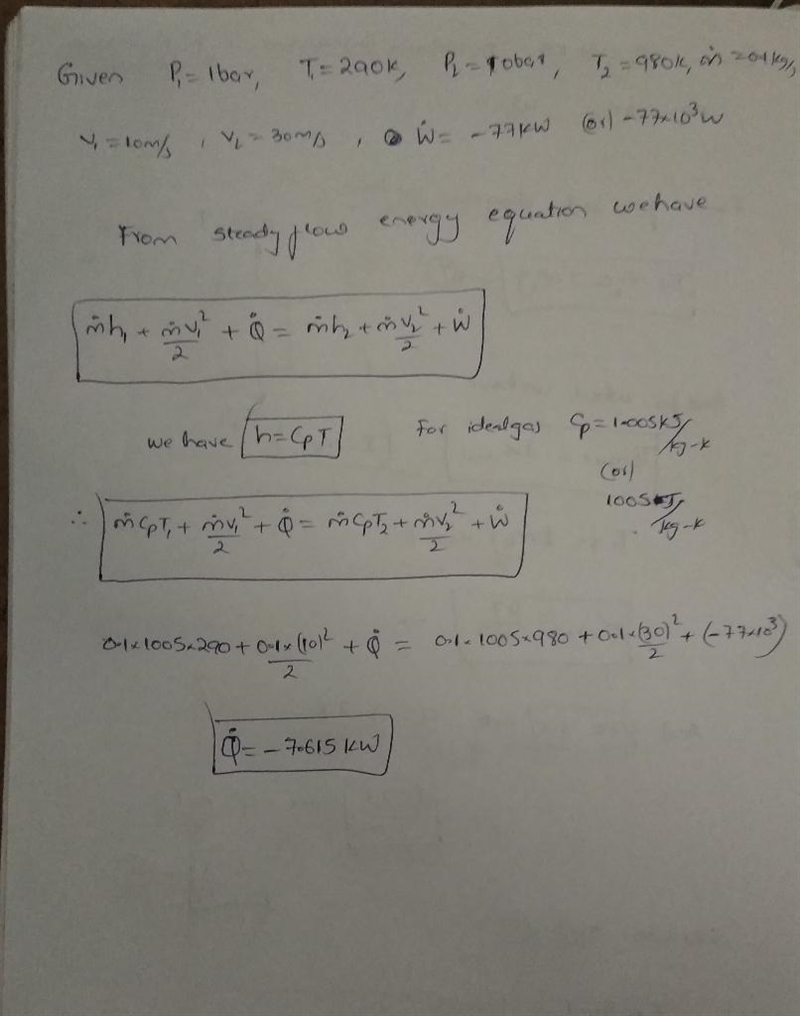 Given P₁ = 1bar, T₁ = 290k, P₂ = 10bar, T₂ = 980k, ṁ = 0.1 kg/s
V₁ = 10m/s, V₂ = 30m/s, Ẇ = -77kW (or) -77×10³W
From steady flow energy equation we have
ṁh₁ + ṁV₁²/2 + Q̇ = ṁh₂ + ṁV₂²/2 + Ẇ
we have h = CpT For ideal gas Cp = 1.005kJ/kg-k
(or)
1005 J/kg-k
∴ ṁCpT₁ + ṁV₁²/2 + Q̇ = ṁCpT₂ + ṁV₂²/2 + Ẇ
0.1×1005×290 + 0.1×(10)²/2 + Q̇ = 0.1×1005×980 + 0.1×(30)²/2 + (-77×10³)
Q̇ = -7.615 kW